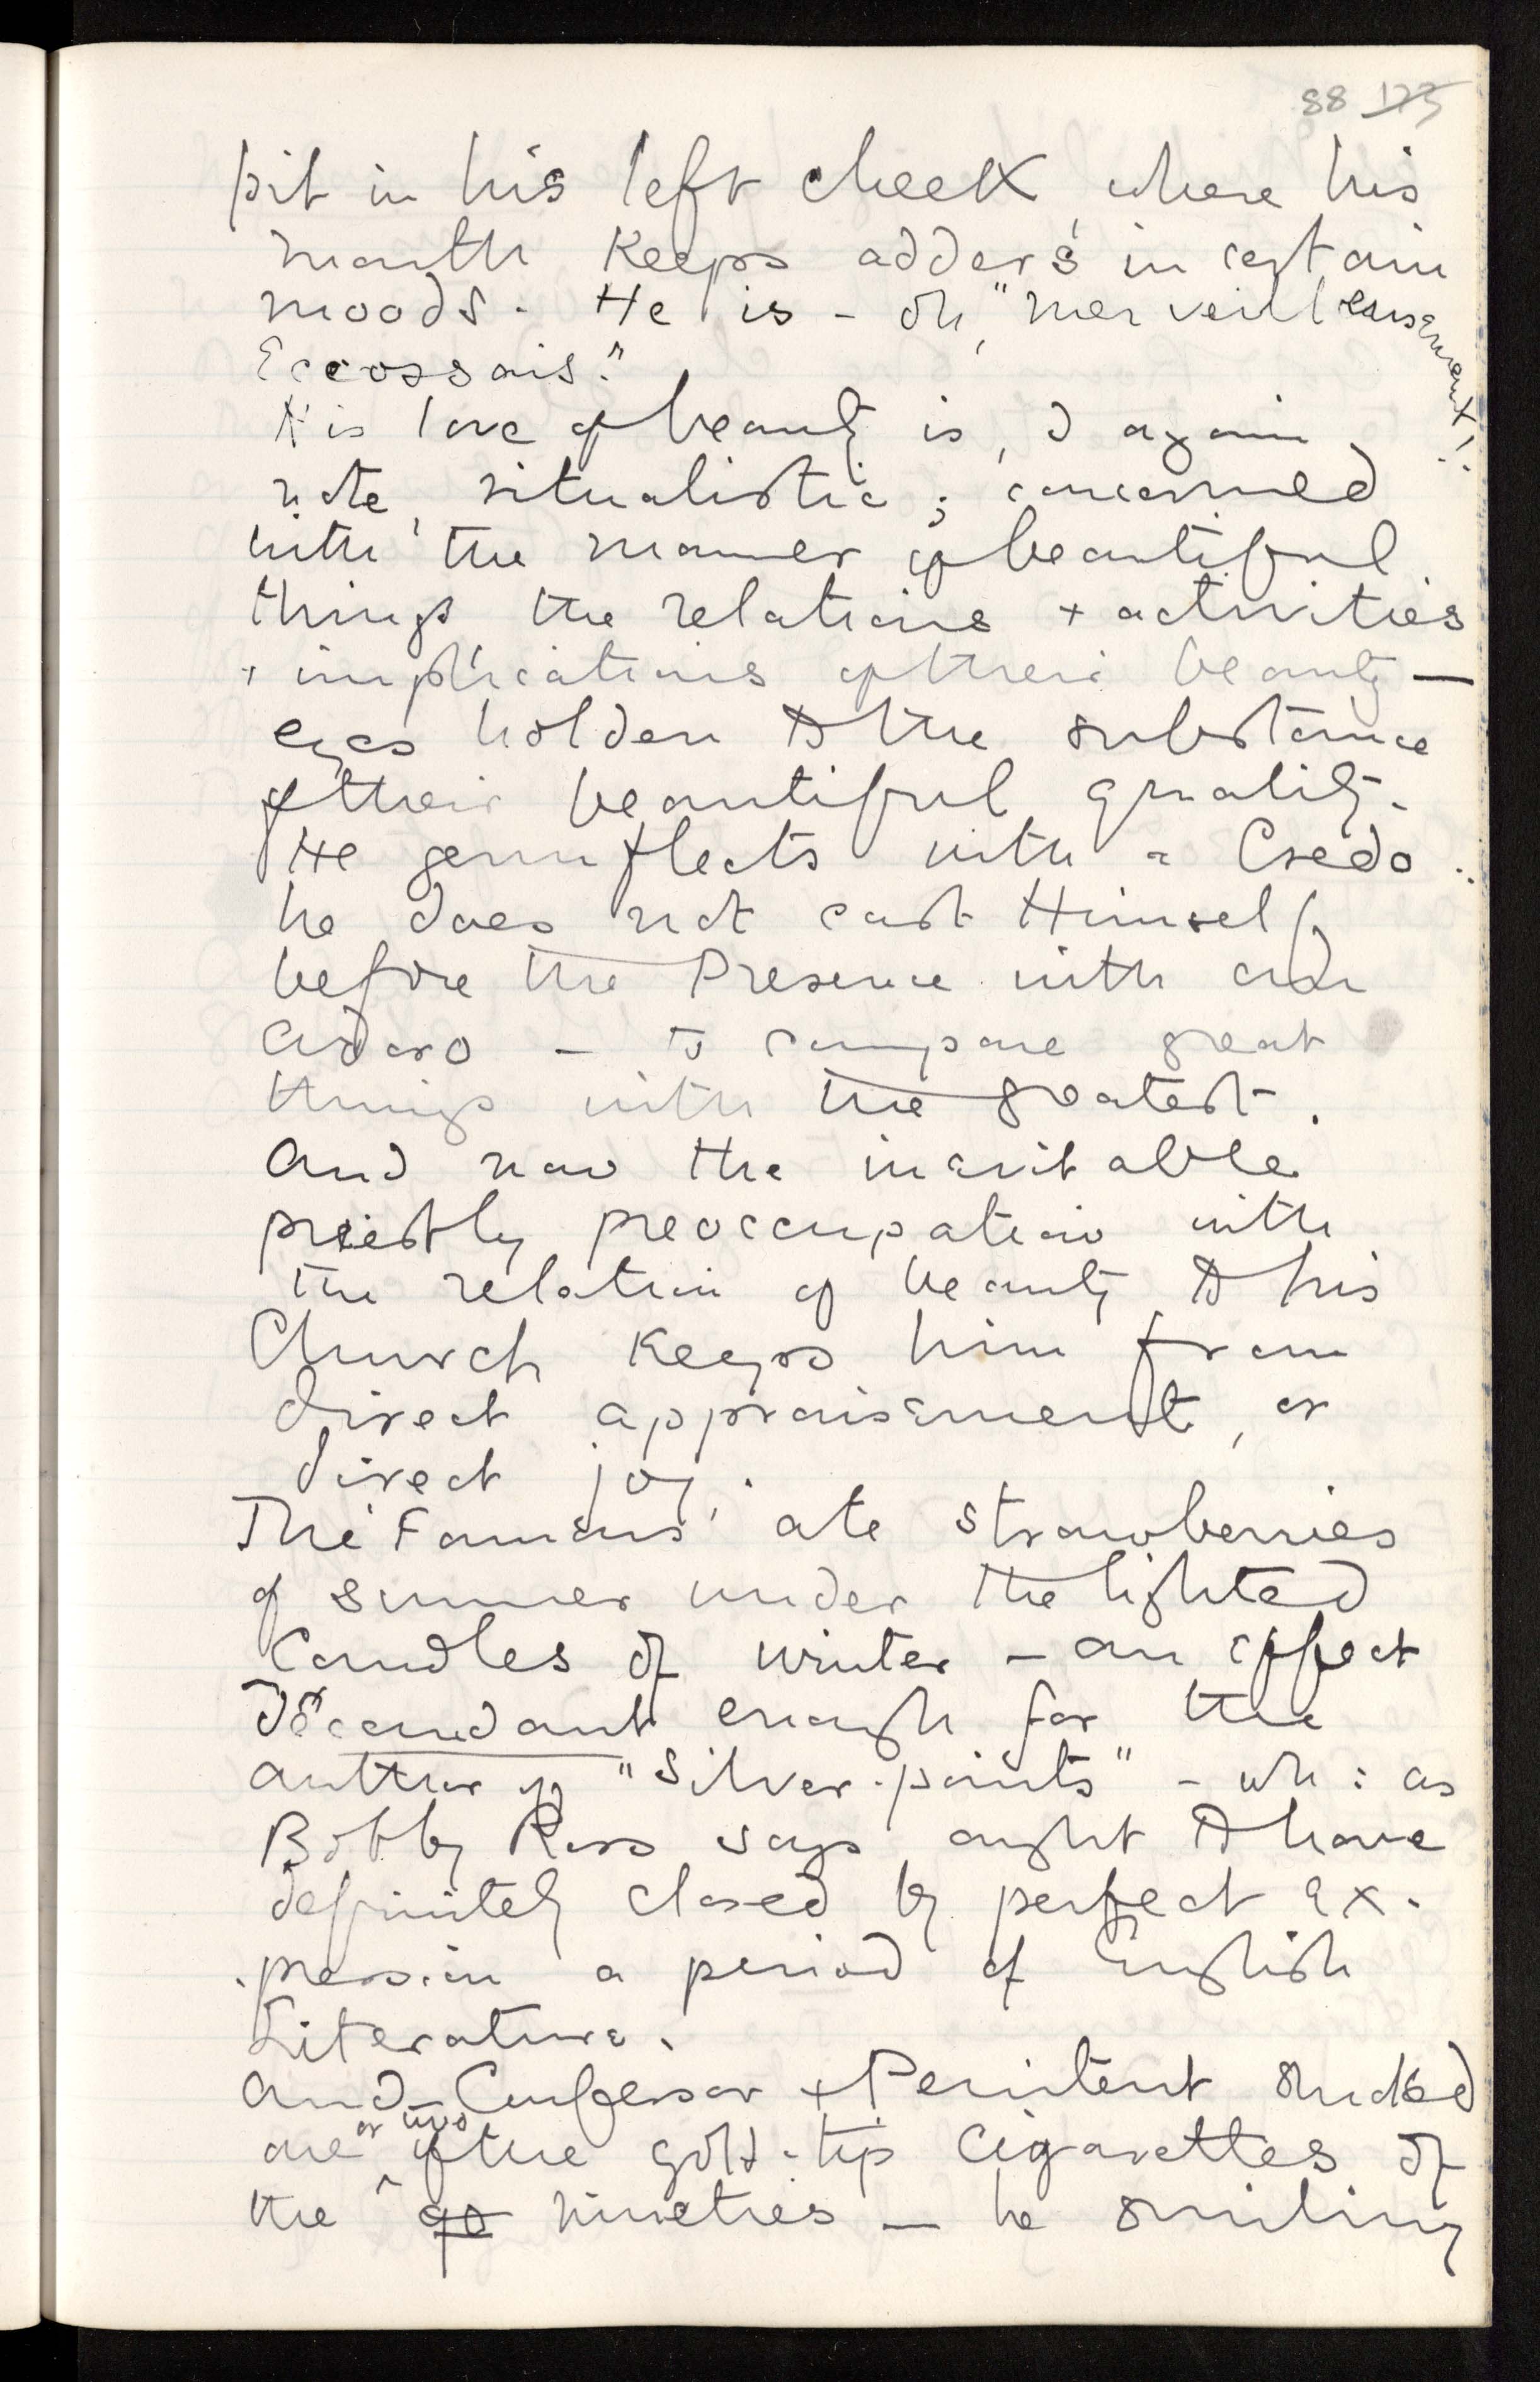 88 173
pit in his left cheek, where his
mouth keeps adders in certain
moods. He is – oh, "merveilleusement!!
Eccossais."
His love of beauty is, I again
note, ritualistic; concerned
with the manner of beautiful
things the relations + activities
+ implications of their beauty —
eyes holden to the substance
of their beautiful quality.
He genuflects with a Credo:
he does not cast Himself
before the Presence with an
Adoro – to compare great
things with the greatest.
And now the inevitable
priestly preoccupation with
the relation of beauty to his
Church keeps him from
direct appraisement, or
direct joy.
The 'Famous' ate strawberries
of summer under the lighted
Candles of winter – an effect
Décandant enough for the
author of "Silver-points" – wh: as
Bobby Ross says, ought to have
definitely closed by perfect ex-
-pression a period of English
Literature.
And Confessor + Penitent smoked
one or two of the gold-tip cigarettes of
the 90 nineties — he smiling